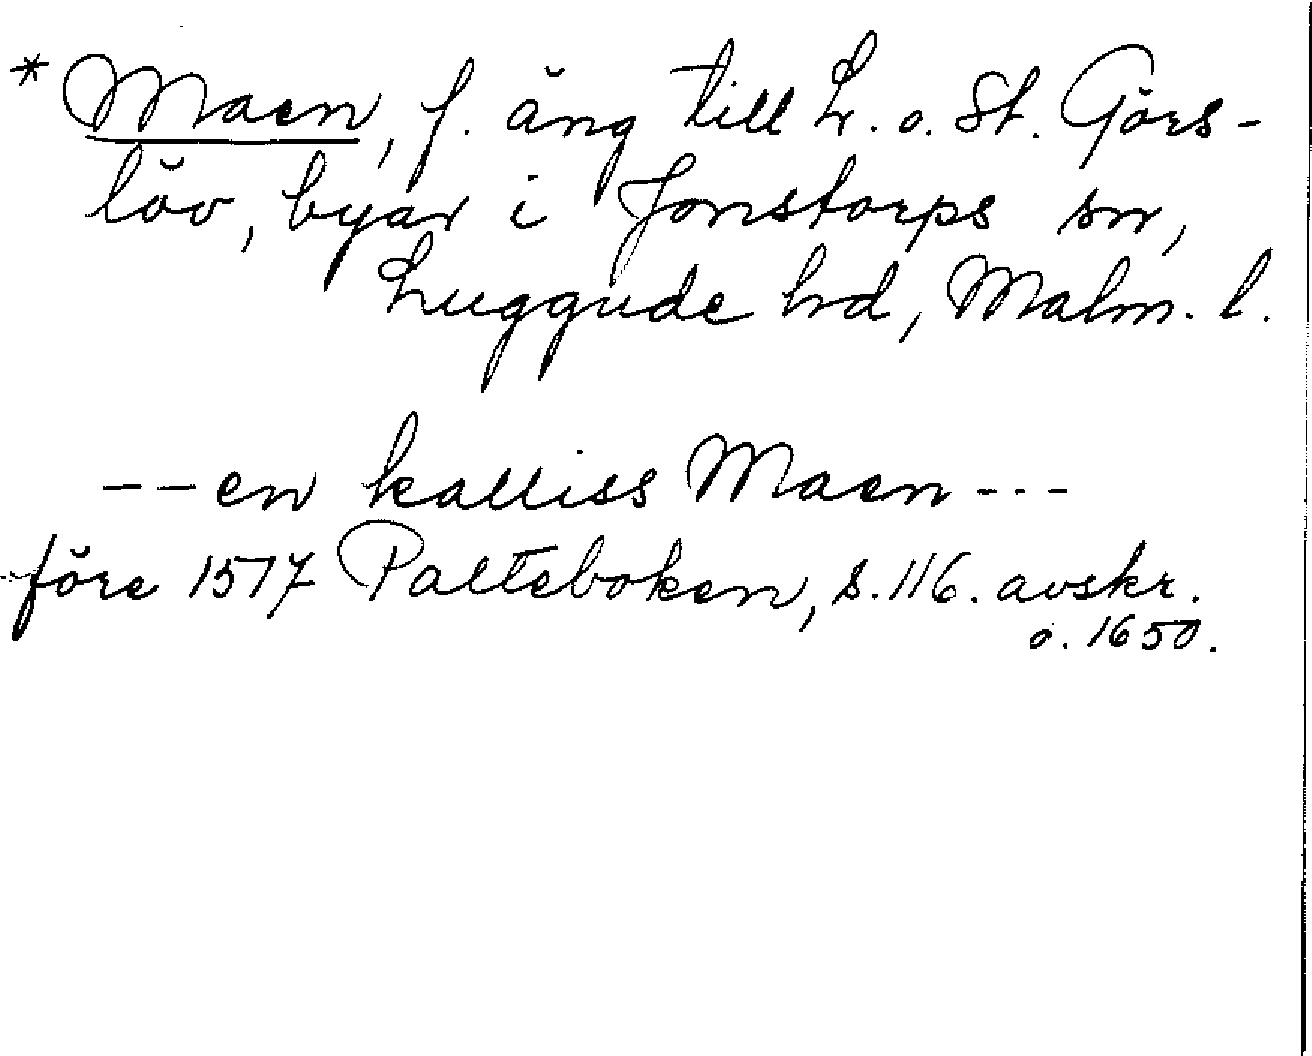 *Maen, f. äng till L. o. St. Görs-
löv, byar i Jonstorps sn,
Luggude hd, Malm. l.
--en kalliss Maen---
före 1517 Palteboken, s. 116. avskr.
o. 1650.